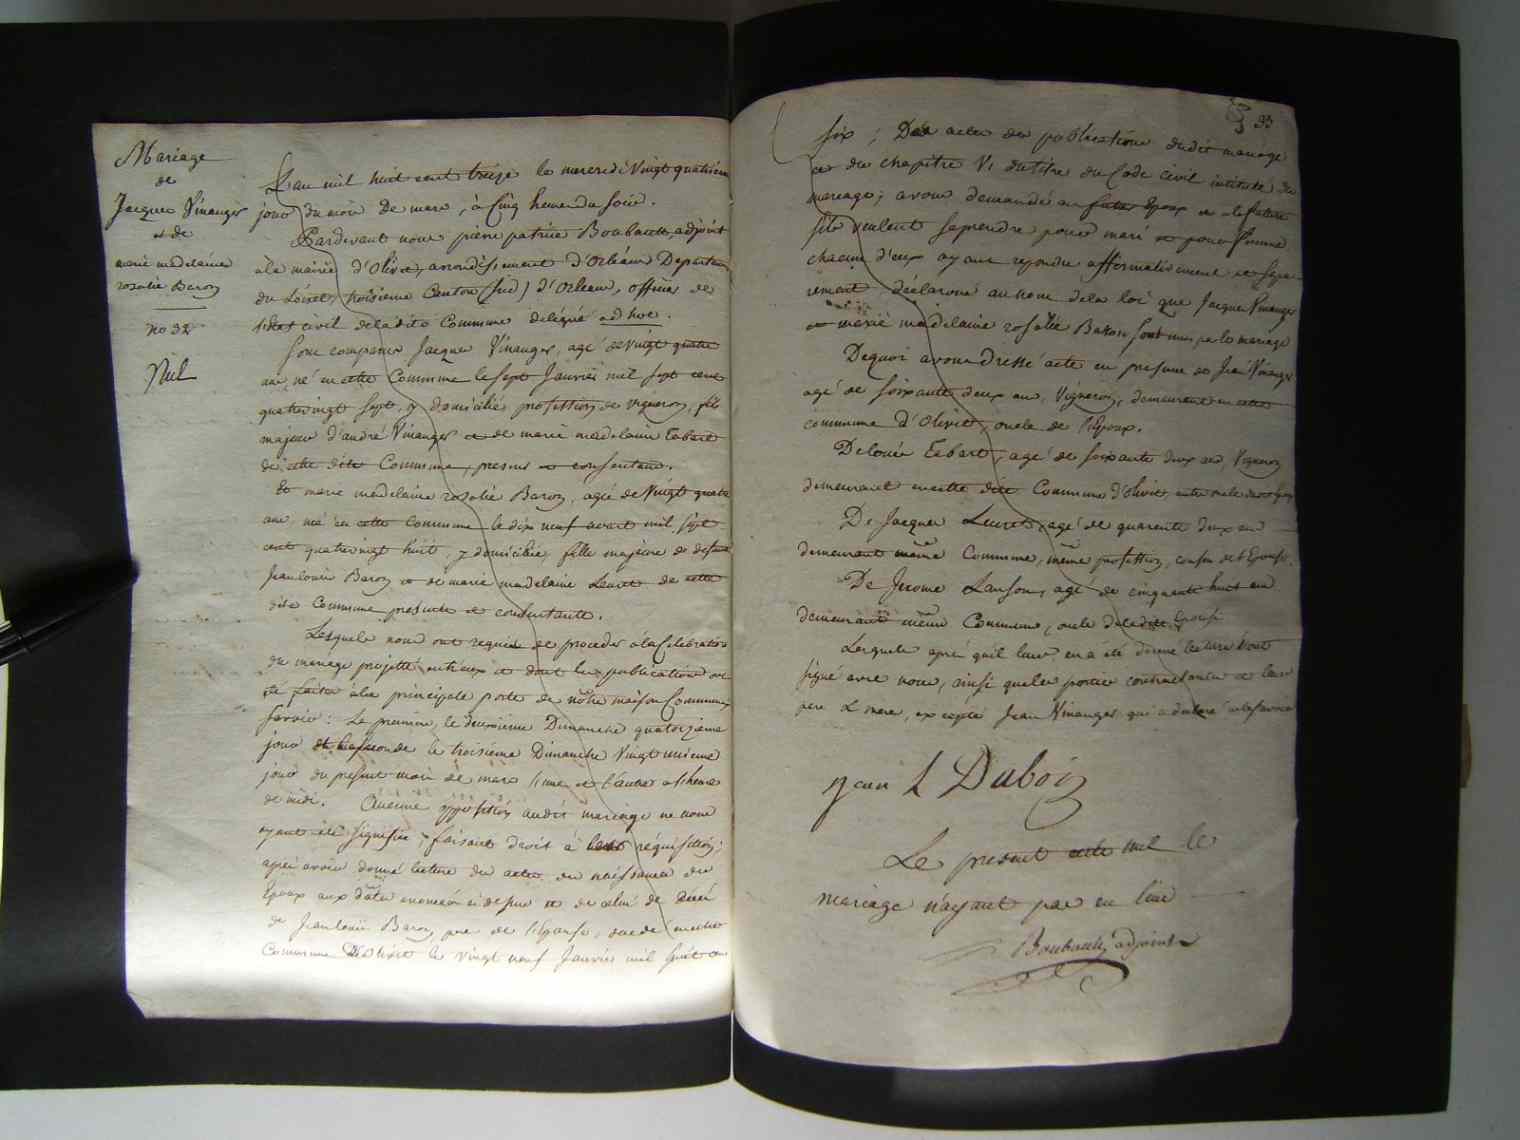 Mariage
de
Jacques Vinauger
et de
marie madelaine
rosalie Baron
no 32
Nul
L'an mil huit cent treize le mercredi Vingt quatrieme
jour du mois de mars, à Cinq heures du soir.
Pardevant nous pierre patrice Boubault, adjoint
à la mairie d'Olivet, arrondissement d'Orléans Departem
du Loiret, troisieme Canton (sud) d'Orleans, officier de
l'état civil de ladite Commune delégué ad hoc.
Sont comparus Jacques Vinauger, agé de vingt quatre
ans, né en cette Commune le sept Janvier mil sept cent
quatrevingt sept, y domicilié, profession de vigneron, fils
majeur d'andré Vinauger et de marie madelaine Tabart
de cette dite Commune, presens et consentans.
Et marie madelaine rosalie Baron, agée de Vingt quatre
ans, née en cette Commune le dix neuf avril mil sept
cent quatrevingt huit, y domiciliée, fille majeure de defunt
Jean louis Baron et de marie madelaine Leuret de cette
dite Commune presente et consentante.
Lesquels nous ont requis de proceder à la Celebration
du mariage projetté entr'eux et dont les publications ont
été faites à la principale porte de notre maison Commune
savoir : La premiere, le deuxieme Dimanche quatorzieme
jour et la seconde le troisieme Dimanche Vingt unieme
jour du present mois de mars l'une et l'autre à l'heure
de midi. Aucune opposition audit mariage ne nous
ayant été signifiée, faisant droit à leur réquisition;
après avoir donné lecture des actes de naissance des
Epoux aux dates enoncées ci dessus et de celui de décès
de Jean louis Baron, pere de l'Epouse, decedé en cette
Commune D'Olivet le vingt neuf Janvier mil huit cent
33
six ; Des actes des publications dudit mariage
et du chapitre VI du titre du Code civil intitulé du
mariage; avons demandé au futur Epoux et à la future
s'ils veulent se prendre pour mari et pour femme
chacun d'eux ayant repondu affirmativement et sépa-
rement, déclarons au nom de la loi que Jacques Vinauger
et marie madelaine rosalie Baron sont unis par le mariage
Dequoi avons dressé acte en presence de Jean Vinauger
agé de soixante deux ans, Vigneron, demeurant en cette
commune d'Olivet, oncle de l'Epoux.
De louis Tabart, agé de soixante deux ans, Vigneron
demeurant en cette dite Commune d'Olivet, autre oncle
De Jacques Leuret, agé de quarante deux ans
demeurant même Commune, même profession, cousin de l'Epouse.
De Jerome Lanson, agé de cinquante huit ans
demeurant même Commune, oncle de ladite Epouse
Lesquels après qu'il leur en a été donné lecture l'ont
signé avec nous, ainsi que les parties contractantes et leurs
pere & mere, excepté Jean Vinauger qui a declaré ne le savoir
jean L Dubois
Le present acte nul le
mariage n'ayant pas eu lieu
Boubault, adjoint